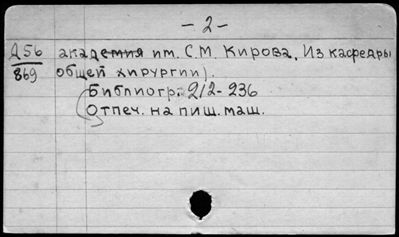 - 2 -
Д56 академия им. С.М. Кирова. Из кафедры
869 общей хирургии).
Библиогр.: 212-236
Отпеч. на пиш. маш.